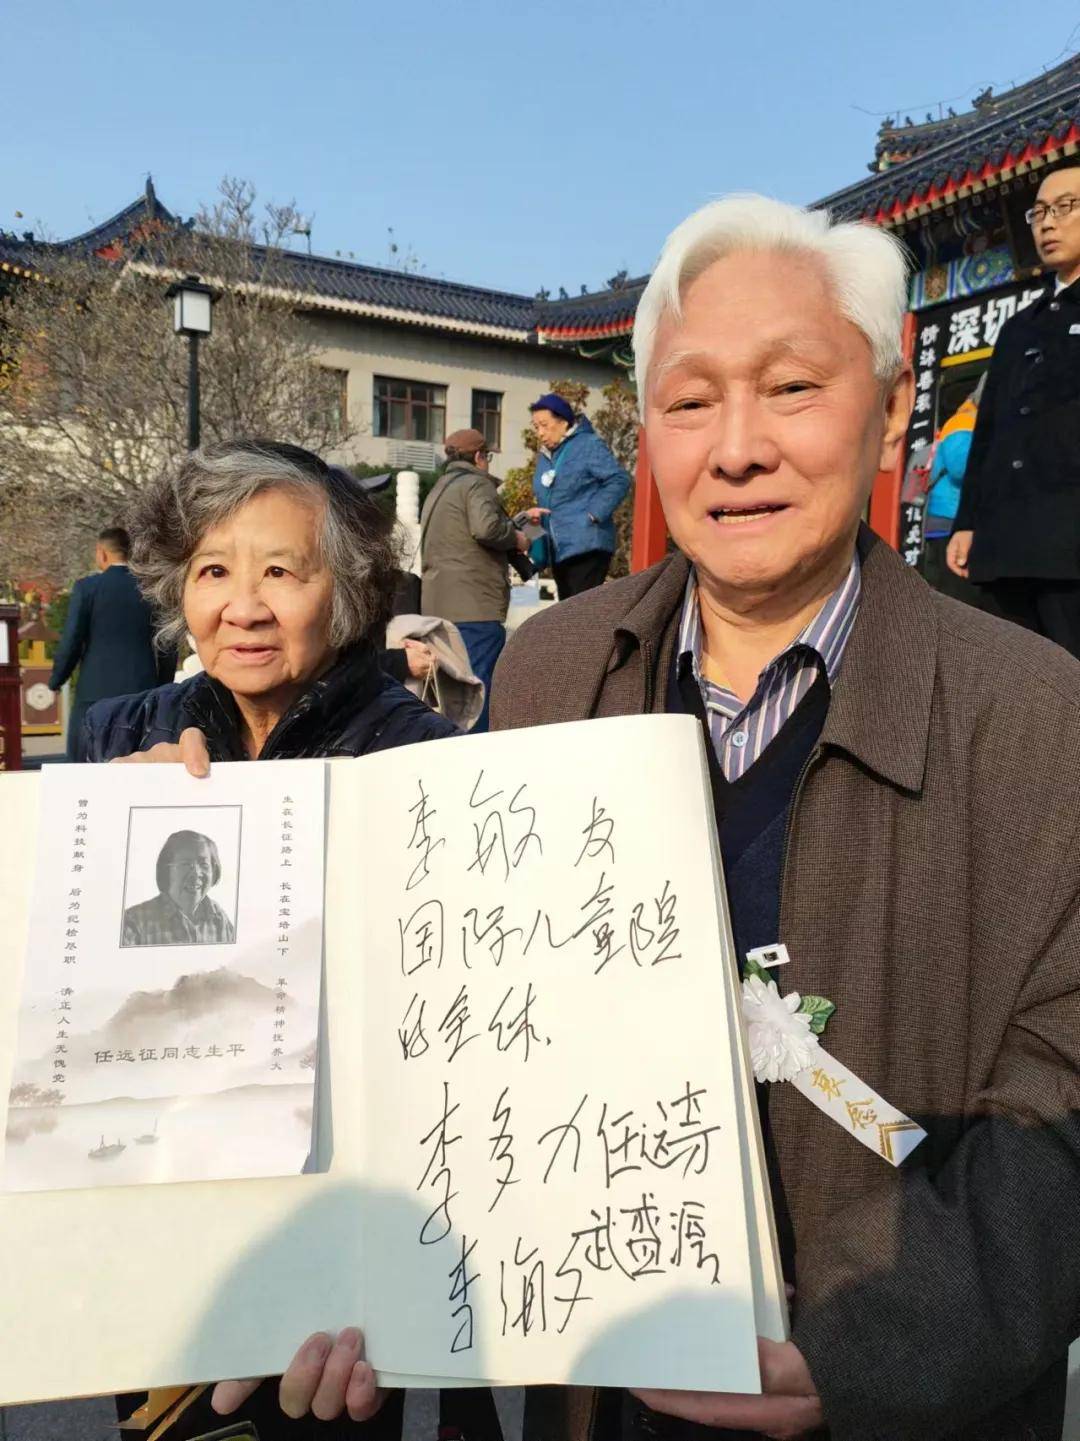 深切
生在长征路上 长在宝塔山下 革命精神抚养大
曾为科技献身 后为纪检尽职 清正人生无愧党
任远征同志生平
李敏及
国际儿童院
的全体、
李多力 任远芳
武盛源
李海